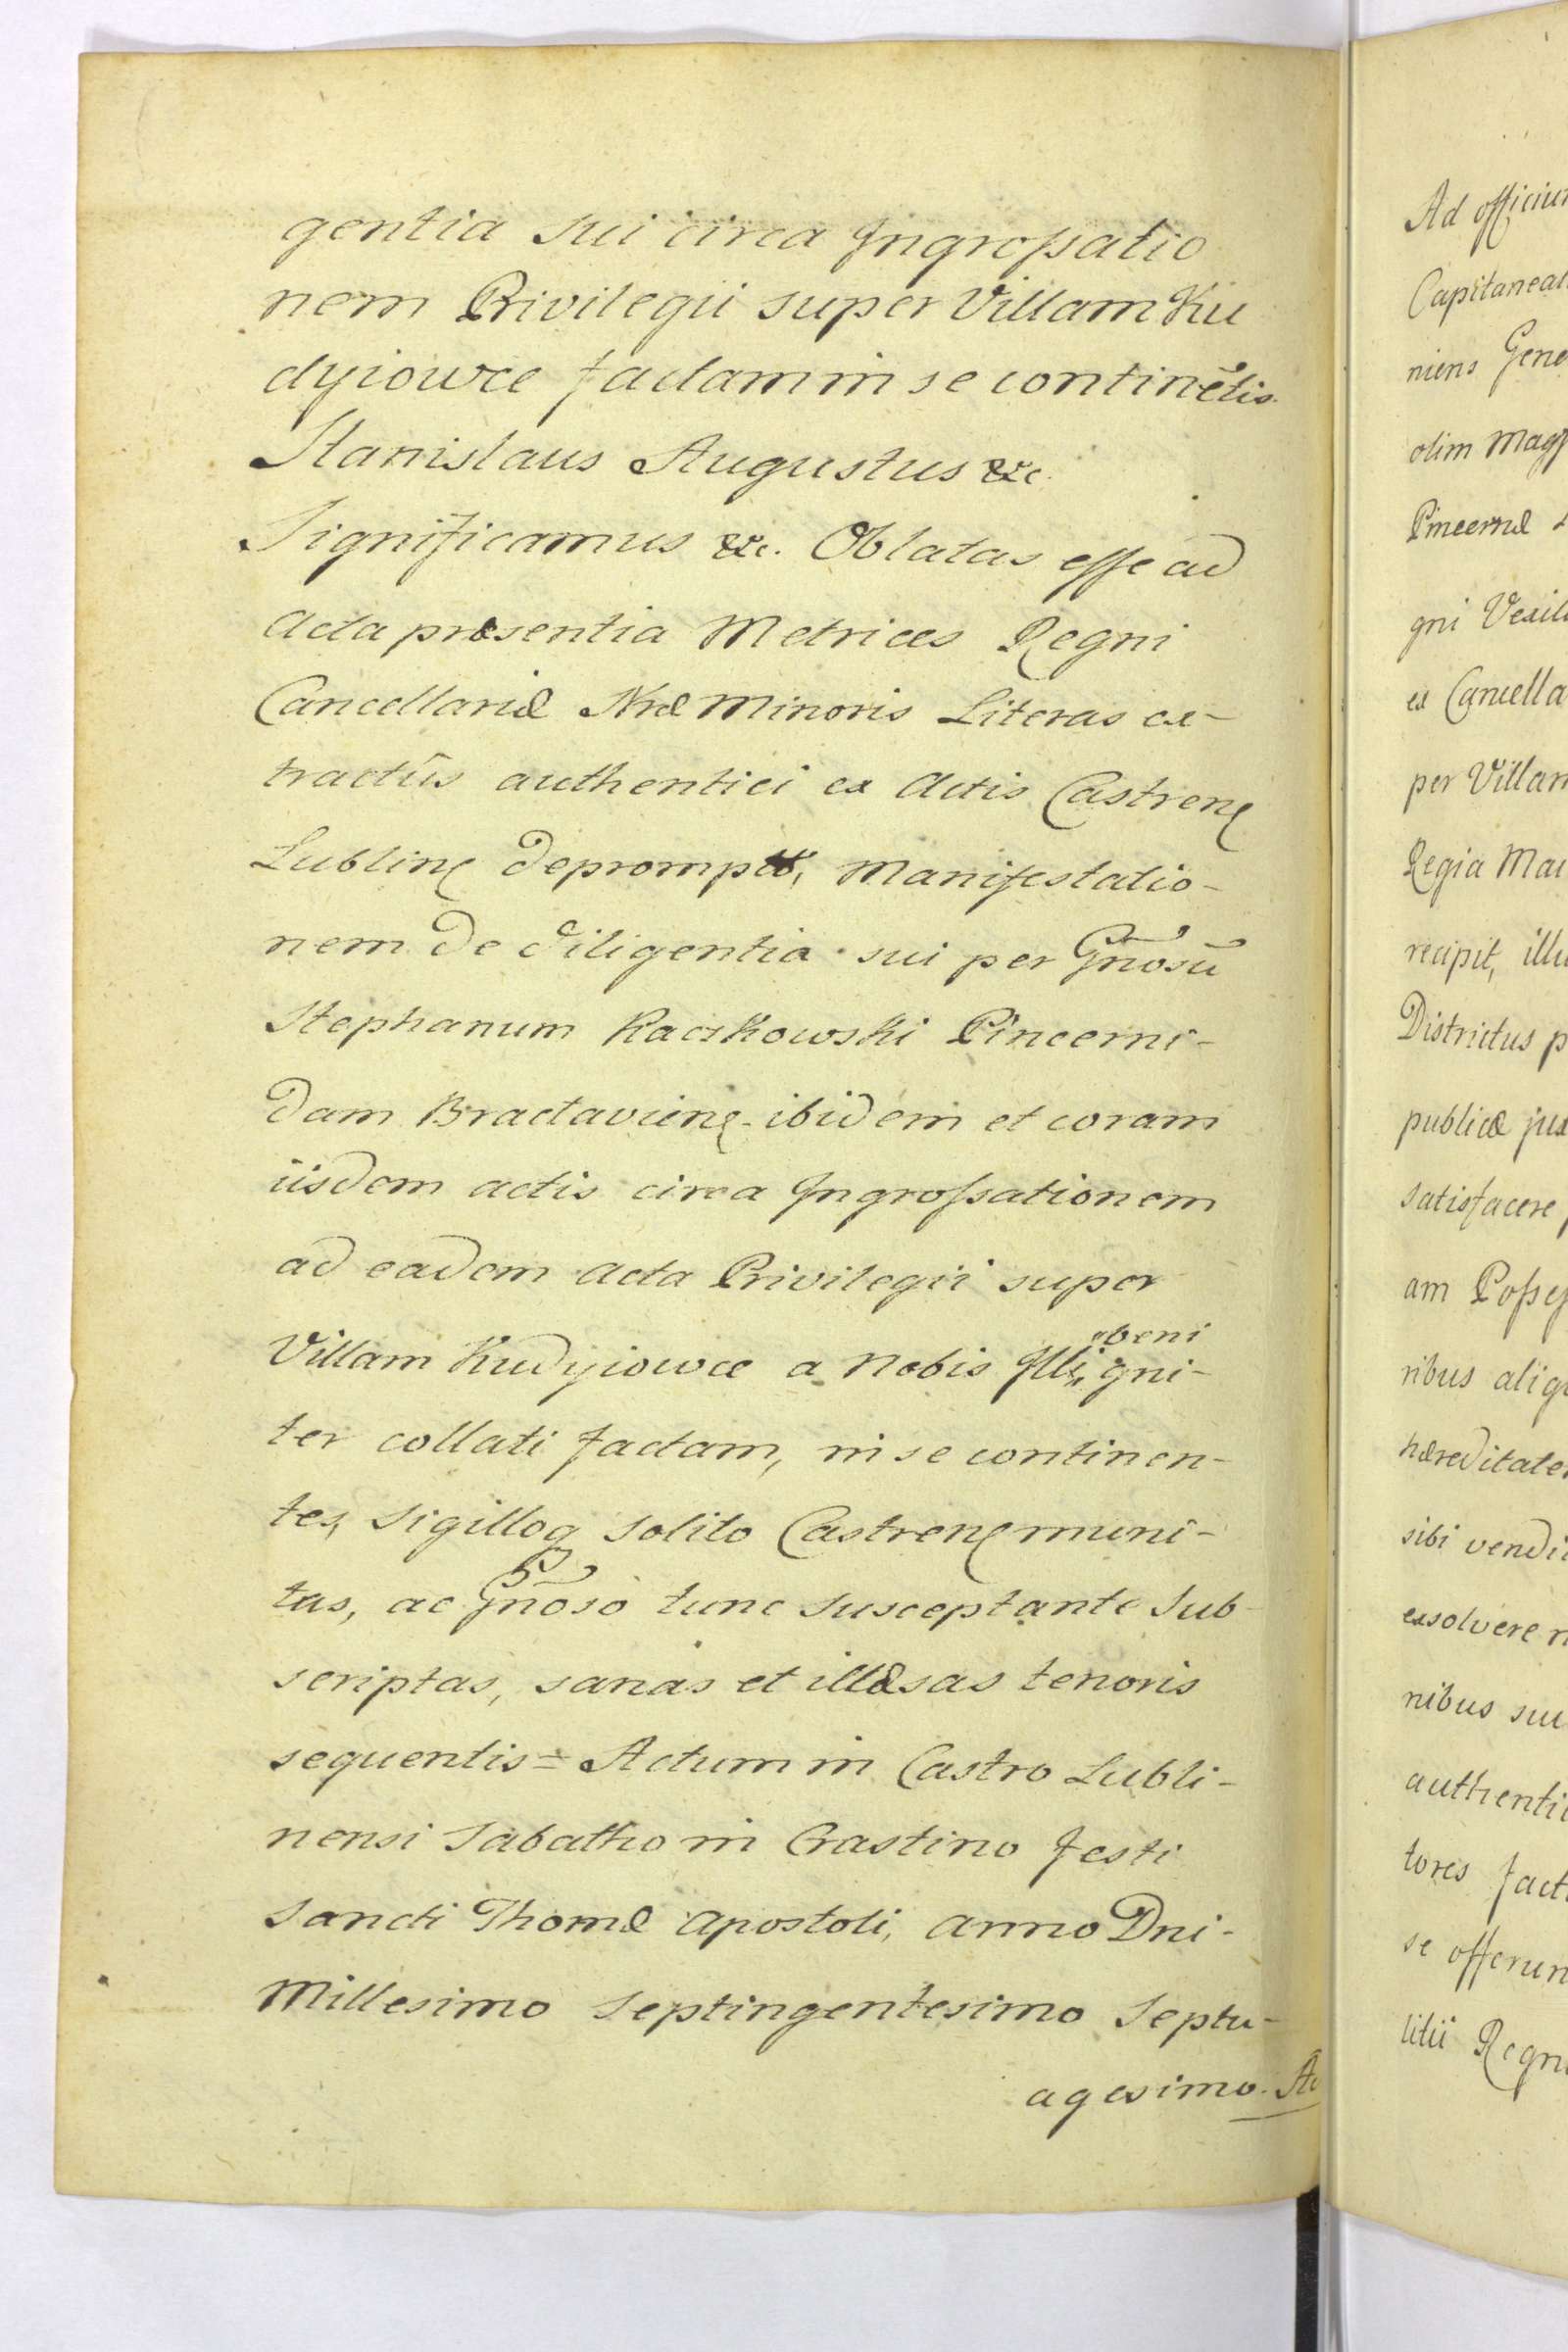 gentia sui circa Ingrossatio
nem Privilegii super Villam Ku
dyiowce factam in se continētis.
Stanislaus Augustus &c.
Significamus &c. Oblatas esse ad
Acta præsentia Metrices Regni
Cancellariæ Nræ Minoris Literas ex-
tractûs authentici ex Actis Castren
Lublin deprompti, Manifestatio-
nem de diligentia sui per Gnosū
Stephanum Raczkowski Pincerni-
dam Bractavien ibidem et coram
iisdem actis circa Ingrossationem
ad eadem Acta Privilegii super
Villam Kudyiowce a Nobis Illi beni gni-
ter collati factam, in se continen-
tes, sigilloq solito Castren muni-
tas, ac Gnoso tunc susceptante sub
scriptas, sanas et illæsas tenoris
sequentis = Actum in Castro Lubli-
nensi Sabatho in Crastino festi
Sancti Thomæ Apostoli, Anno Dni-
Millesimo Septingentesimo Septu-
agesimo. Ad
Ad officium
Capitaneat
niens Gene
olim Magf
Pincernæ
gni Vexill
ex Cancella
per Villam
Regia Mai
recipit, illu
Districtus p
publicæ jux
satisfacere
am Possef
ribus aliq
hæreditate
sibi vendi
exsolvere n
nibus suu
authentic
tores fact
se offerun
litii Regni